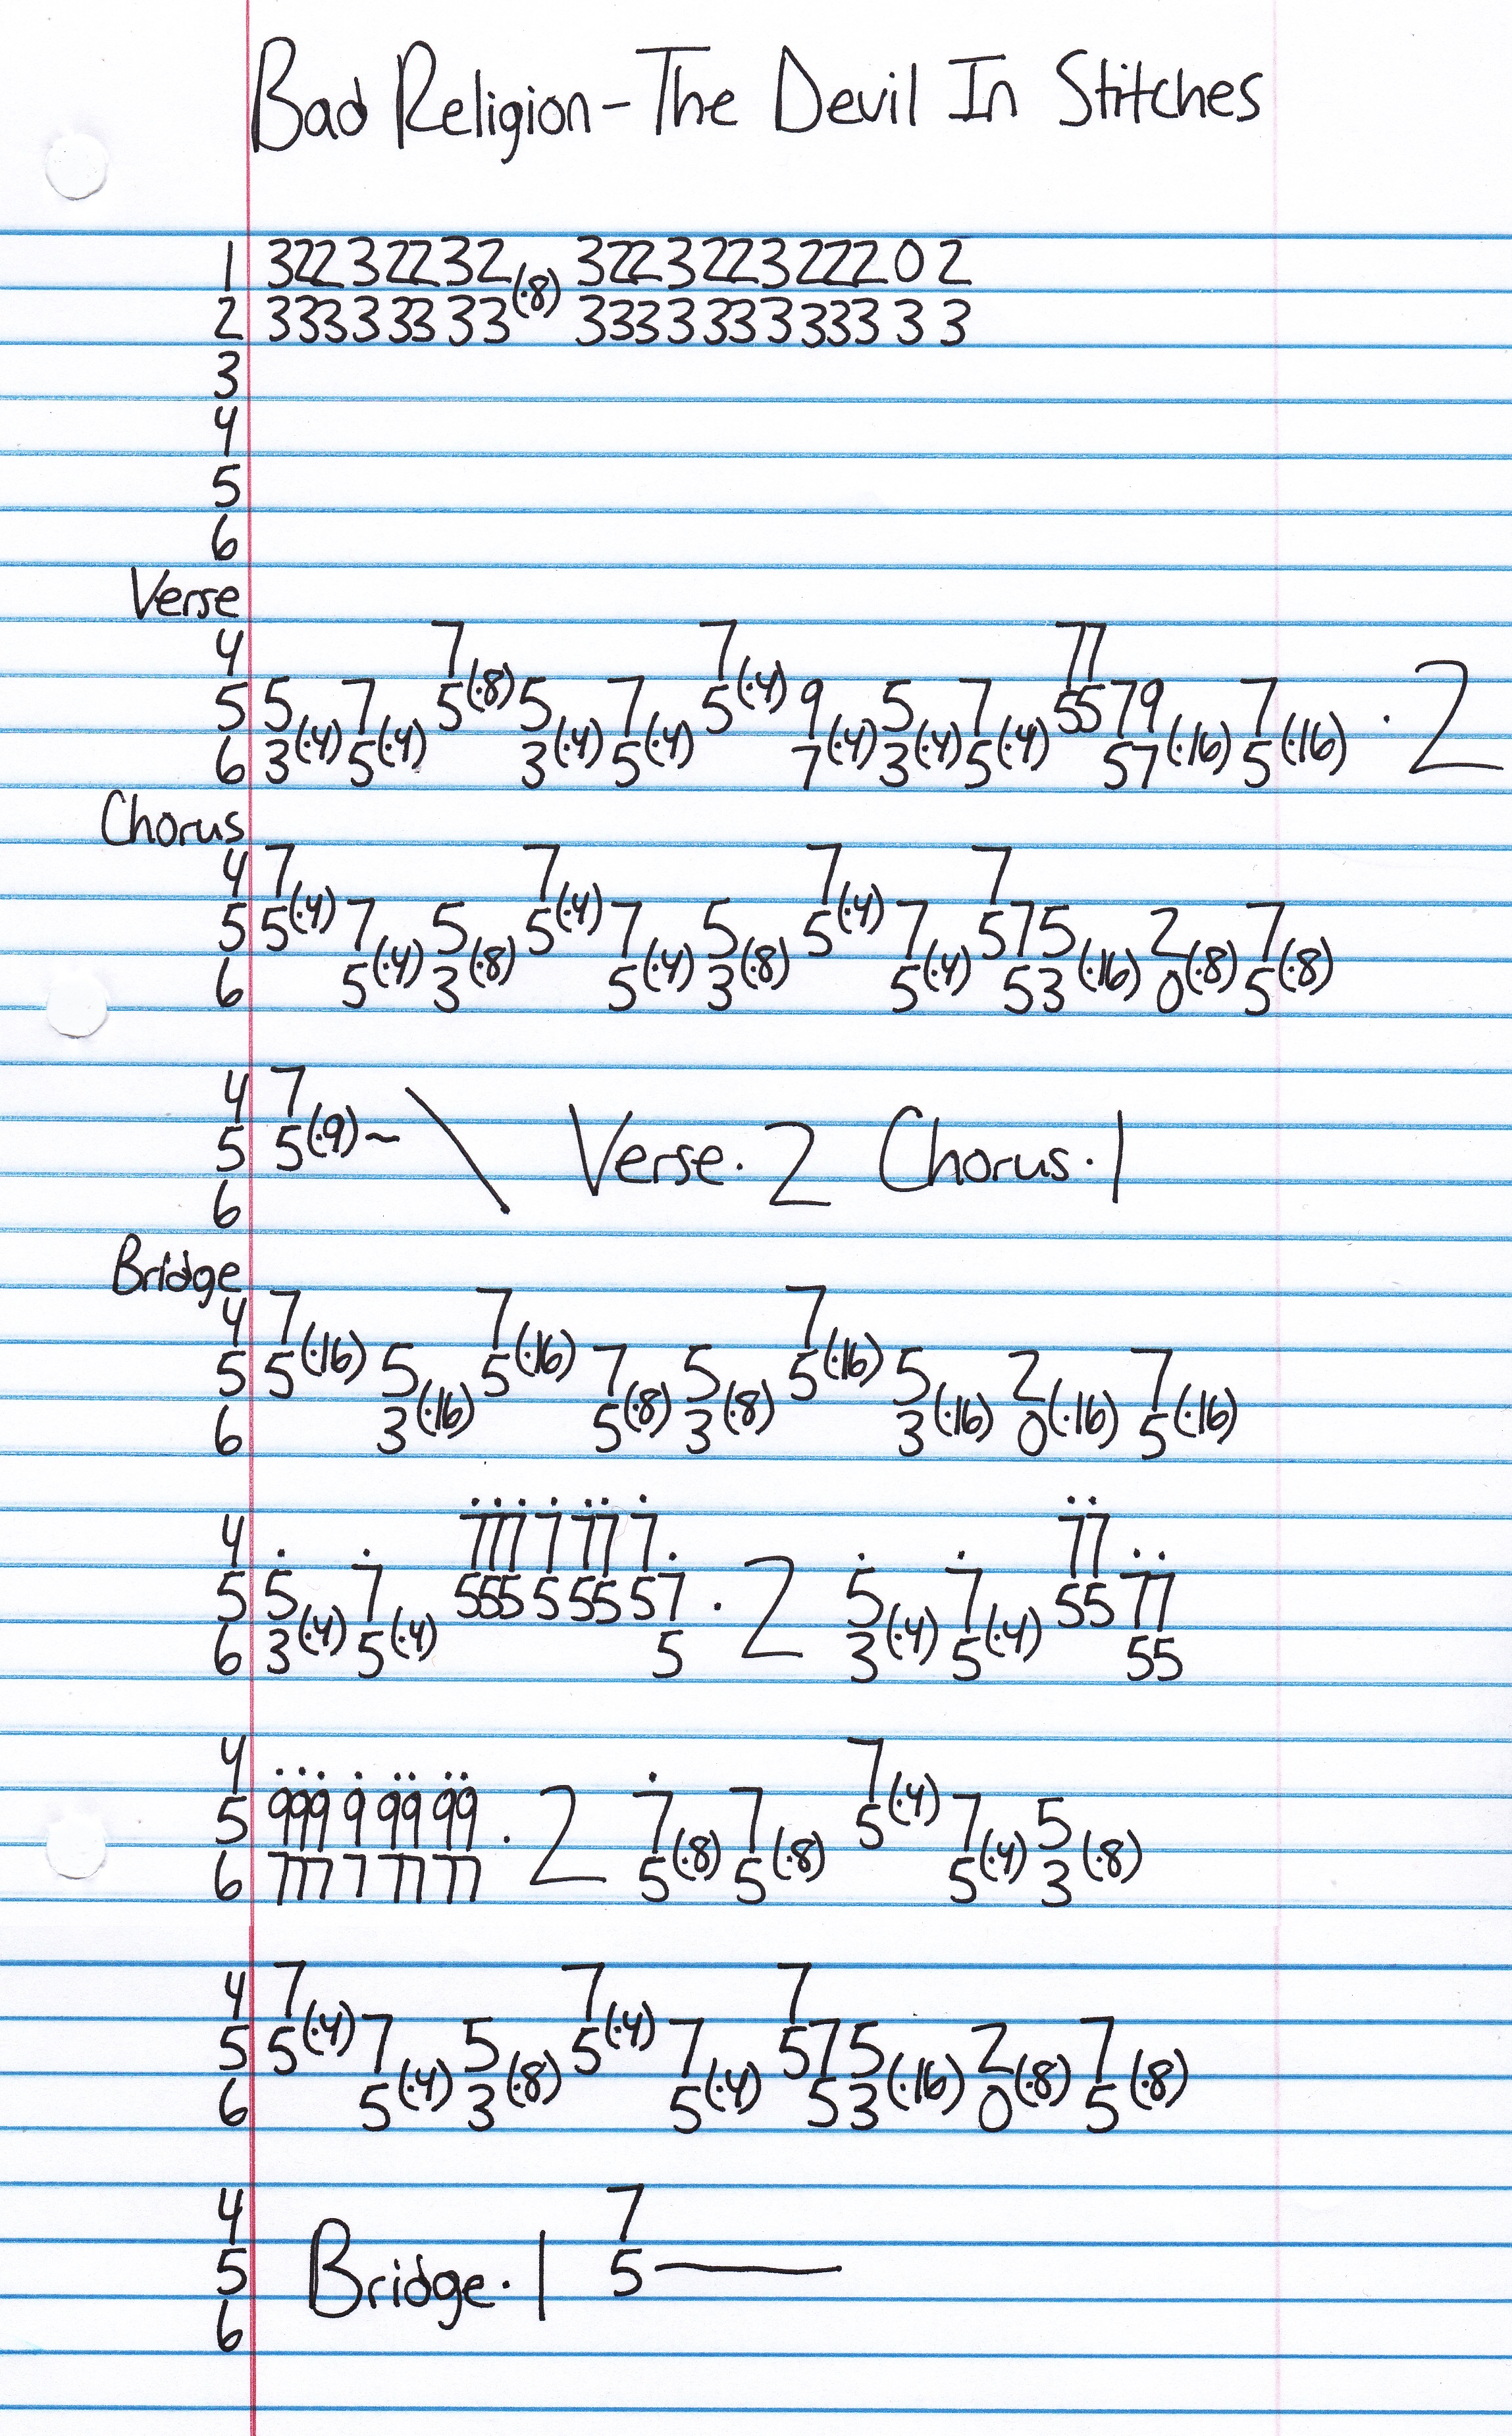 Bad Religion - The Devil In Stitches
1 322 322 32 (·8) 322 322 3222 0 2
2 333 3 33 33 333 3 33 3 333 3 3
3
4
5
6
Verse
4 7 7 77
5 5 7 5(·8) 5 7 5(·4) 9 5 7 5579 7 · 2
6 3(·4) 5(·4) 3(·4) 5(·4) 7(·4) 3(·4) 5(·4) 57(·16) 5(·16)
Chorus
4 7 7 7 7
5 5(·4) 7 5 5(·4) 7 5 5(·4) 7 575 2 7
6 5(·4) 3(·8) 5(·4) 3(·8) 5(·4) 53(·16) 0(·8) 5(·8)
4 7
5 5(·9)~ \ Verse · 2 Chorus · 1
6
Bridge
4 7 7 7
5 5(·16) 5 5(·16) 7 5 5(·16) 5 2 7
6 3(·16) 5(·8) 3(·8) 3(·16) 0(·16) 5(·16)
4 777 7 77 7 77
5 5 7 555 5 55 57 · 2 5 7 55 77
6 3(·4) 5(·4) 5 3(·4) 5(·4) 55
4 7
5 999 9 99 99 · 2 7 7 5(·4) 7 5
6 777 7 77 77 5(·8) 5(·8) 5(·4) 3(·8)
4 7 7 7
5 5(·4) 7 5 5(·4) 7 575 2 7
6 5(·4) 3(·8) 5(·4) 53(·16) 0(·8) 5(·8)
4 7
5 Bridge · 1 5—
6